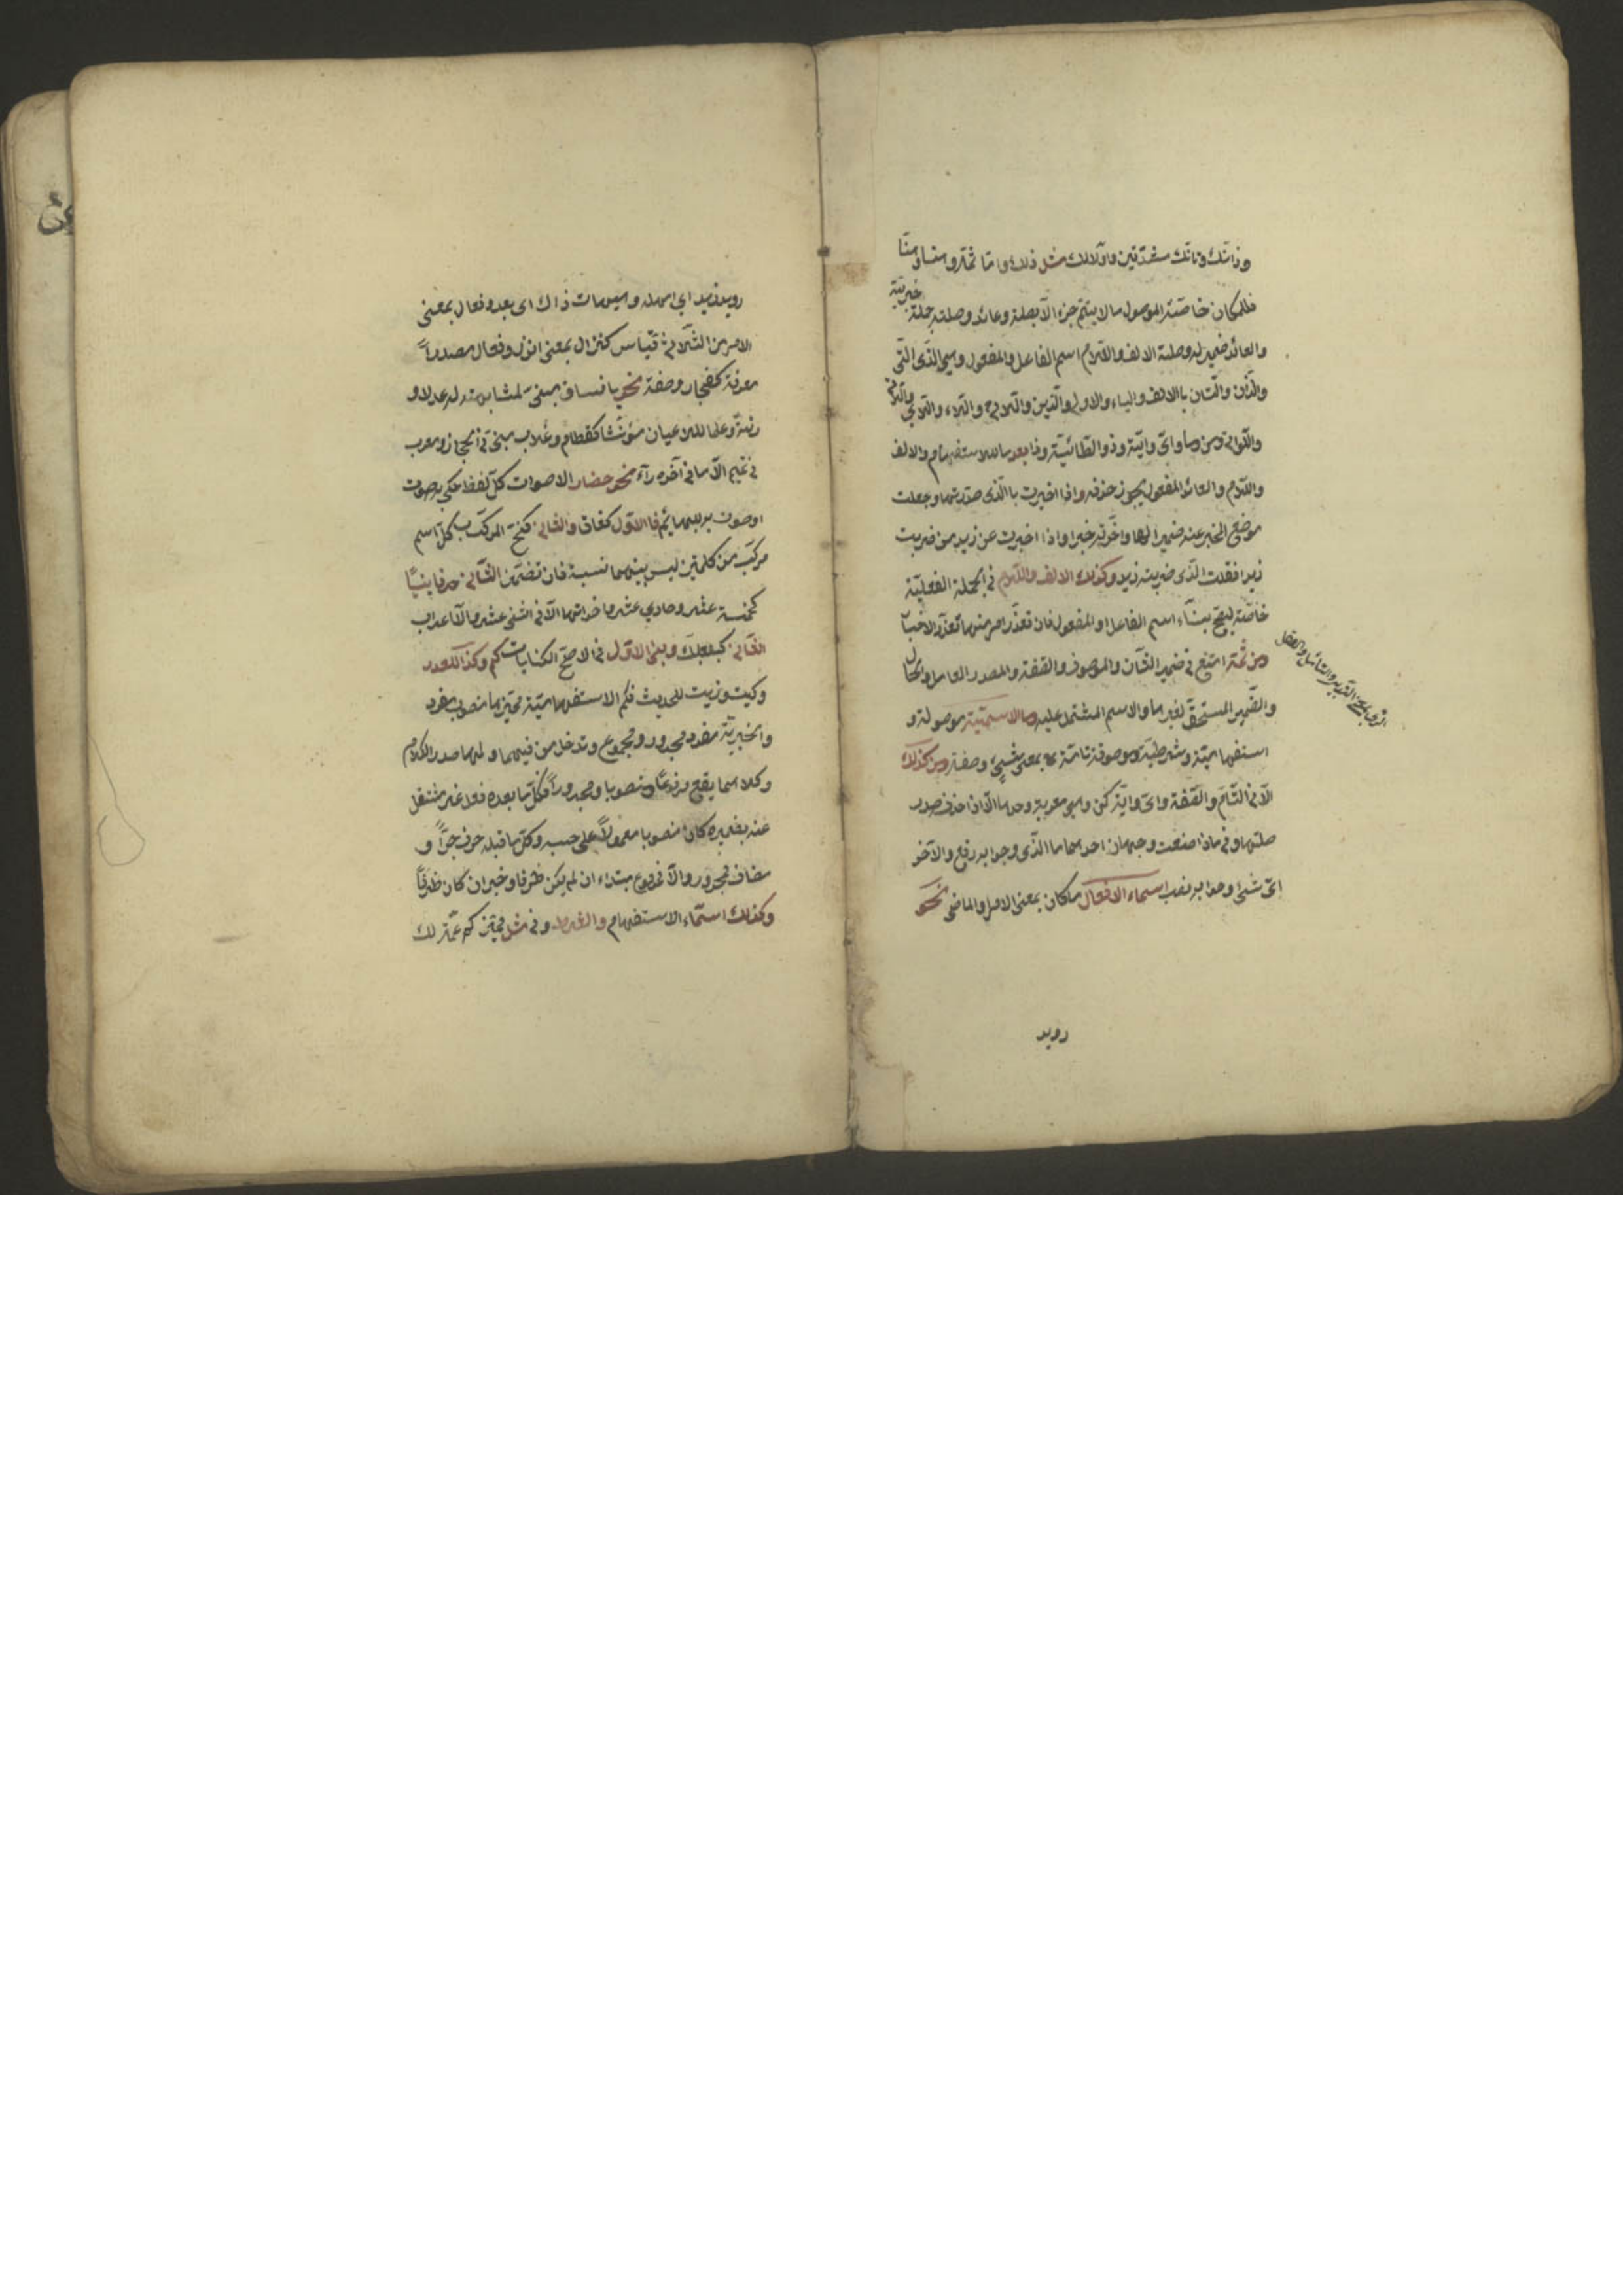 وذانك وتانك مشدّدتين واولالك مثل ذلك وامّا ثمّه وهنا وهنّا
فللمكان خاصّة الموصول ما لا يتمّ جزء الّا بصلة وعائد وصلته جملة خبريّة
والعائد ضمير له وصلة الالف واللّام اسم الفاعل والمفعول وهي الّذى الّتى
والّذان والّتان باالالف والياء والاولى والّذين والّلائي والّلاء والّلاتي والّلاتى
والّلواتى ومن وما وايّ وايّة وذو الطّائيّة وذا بعد ما للاستفهام والالف
واللّام والعائد المفعول يجوز حذفه واذا اخبرت باالّذى صدّرتها وجعلت
موضع المخبر عنه ضميرا لها واخّرته خبرا واذا اخبرت عن زيد من ضربت
زيدا فقلت الّذى ضربته زيد وكذلك الالف واللّام في الجملة الفعليّة
خاصّة ليصحّ بناء اسم الفاعل او المفعول فان تعذّر امر منها تعذّر الاخبار
ومن ثمّة امتنع في ضمير الشّان والموصوف والصّفة والمصدر العامل والحال
والضّمير المستحقّ لغيرها والاسم المشتمل عليه وما الاسميّة موصولة و
استفهاميّة وشرطيّة وموصوفة تامّة بمعنى شيئ وصفة ومن كذلك
الّا في التّامّ والصّفة وايّ وايّة كمن وهي معربة وحدها الّا اذا حذف صدر
صلتها وفي ماذا صنعت وجهان احدهما ما الّذى وجوابه رفع والآخر
ايّ شئ وجوابه نصب اسماء الافعال ما كان بمعنى الامر والماضى نحو
رويد
رويد زيدا اي امهله وهيهات ذاك اى بعد وفعال بمعنى
الامر من الثّلاثى قياس كنزال بمعنى انزل وفعال مصدراً
معرفة كفجار وصفة نحو يا فساق مبنىّ لمشابهته له عدلا و
زنة وعلما للاعيان مؤنّثا كقطام وغلاب مبنىّ في الحجاز ومعرب
في تميم الّا ما في آخره رآء نحو حضار الاصوات كلّ لفظ حكي به صوت
او صوت به للبهائم فاالاوّل كغاق والثانى كنخ المركّب كلّ اسم
مركّب من كلمتين ليس بينهما نسبة فان تضمّن الثّانى حرفا بنيا
كخمسة عشر وحادي عشر واخواتهما الّا في اثنى عشر والّا اعرب
الثّانى كبعلبك وبنى الاوّل في الاصحّ الكنايات كم وكذا للعدد
وكيت وذيت للحديث فكم الاستفهاميّة مميّزها منصوب مفرد
والخبريّة مفرد مجرور ومجموع وتدخل من فيهما ولهما صدر الكلام
وكلاهما يقع مرفوعا ومنصوبا ومجروراً فكلّ ما بعده فعل غير مشتغل
عنه بضميره كان منصوبا معمولاً على حسبه وكلّ ما قبله حرف جرّ او
مضاف فمجرور والّا فمرفوع مبتداء ان لم يكن ظرفا وخبر ان كان ظرفاً
وكذلك اسمّاء الاستفهام والشرط وفي مثل تمييز كم عمّة لك